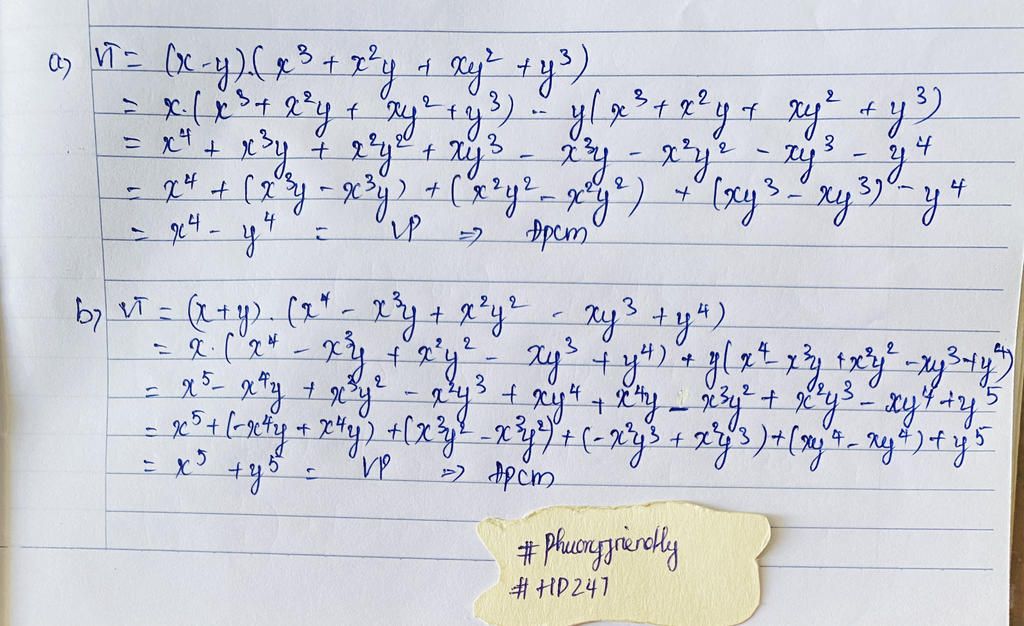 a) VT = (x - y).(x³ + x²y + xy² + y³)
= x.(x³ + x²y + xy² + y³) - y(x³ + x²y + xy² + y³)
= x⁴ + x³y + x²y² + xy³ - x³y - x²y² - xy³ - y⁴
= x⁴ + (x³y - x³y) + (x²y² - x²y²) + (xy³ - xy³) - y⁴
= x⁴ - y⁴ = VP => Đpcm
b) VT = (x + y).(x⁴ - x³y + x²y² - xy³ + y⁴)
= x.(x⁴ - x³y + x²y² - xy³ + y⁴) + y(x⁴ - x³y + x²y² - xy³ + y⁴)
= x⁵ - x⁴y + x³y² - x²y³ + xy⁴ + x⁴y - x³y² + x²y³ - xy⁴ + y⁵
= x⁵ + (-x⁴y + x⁴y) + (x³y² - x³y²) + (-x²y³ + x²y³) + (xy⁴ - xy⁴) + y⁵
= x⁵ + y⁵ = VP => Đpcm
# Phuongfriendly
# HD247